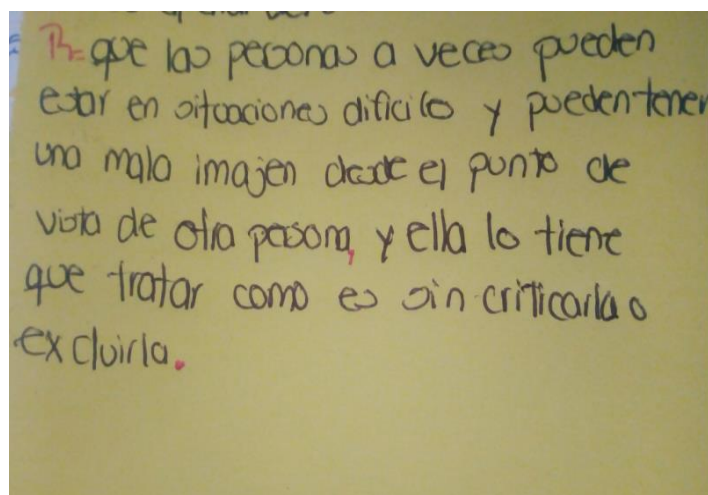 R= que las personas a veces pueden
estar en situaciones dificiles y pueden tener
una mala imajen desde el punto de
vista de otra persona, y ella lo tiene
que tratar como es sin criticarla o
excluirla.